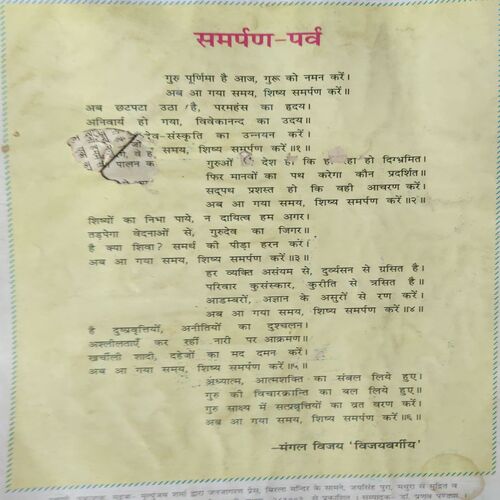 समर्पण-पर्व
गुरु पूर्णिमा है आज, गुरू को नमन करें।
अब आ गया समय, शिष्य समर्पण करें॥
अब छटपटा उठा है, परमहंस का हृदय।
अनिवार्य हो गया, विवेकानन्द का उदय॥
देव-संस्कृति का उन्नयन करें।
समय, शिष्य समर्पण करें॥१॥
गुरुओं देश हा कि हा हो दिग्भ्रमित।
फिर मानवों का पथ करेगा कौन प्रदर्शित॥
सद्पथ प्रशस्त हो कि वही आचरण करें।
अब आ गया समय, शिष्य समर्पण करें॥२॥
शिष्यों का निभा पाये, न दायित्व हम अगर।
तड़पेगा वेदनाओं से, गुरुदेव का जिगर॥
है क्या शिवा? समर्थ की पीड़ा हरन करें।
अब आ गया समय, शिष्य समर्पण करें॥३॥
हर व्यक्ति असंयम से, दुर्व्यसन से ग्रसित है।
परिवार कुसंस्कार, कुरीति से त्रसित है॥
आडम्बरों, अज्ञान के असुरों से रण करें।
अब आ गया समय, शिष्य समर्पण करें॥४॥
है दुष्प्रवृत्तियों, अनीतियों का दुश्चलन।
अश्लीलताएँ कर रहीं नारी पर आक्रमण॥
खर्चीली शादी, दहेजों का मद दमन करें।
अब आ गया समय, शिष्य समर्पण करें॥५॥
अध्यात्म, आत्मशक्ति का संबल लिये हुए।
गुरु की विचारक्रान्ति का बल लिये हुए॥
गुरु साक्ष्य में सत्प्रवृत्तियों का व्रत वरण करें।
अब आ गया समय, शिष्य समर्पण करें॥६॥
—मंगल विजय 'विजयवर्गीय'
मृत्युंजय शर्मा द्वारा जनजागरण प्रेस, बिरला मन्दिर के सामने, जयसिंह पुरा, मथुरा से मुद्रित व